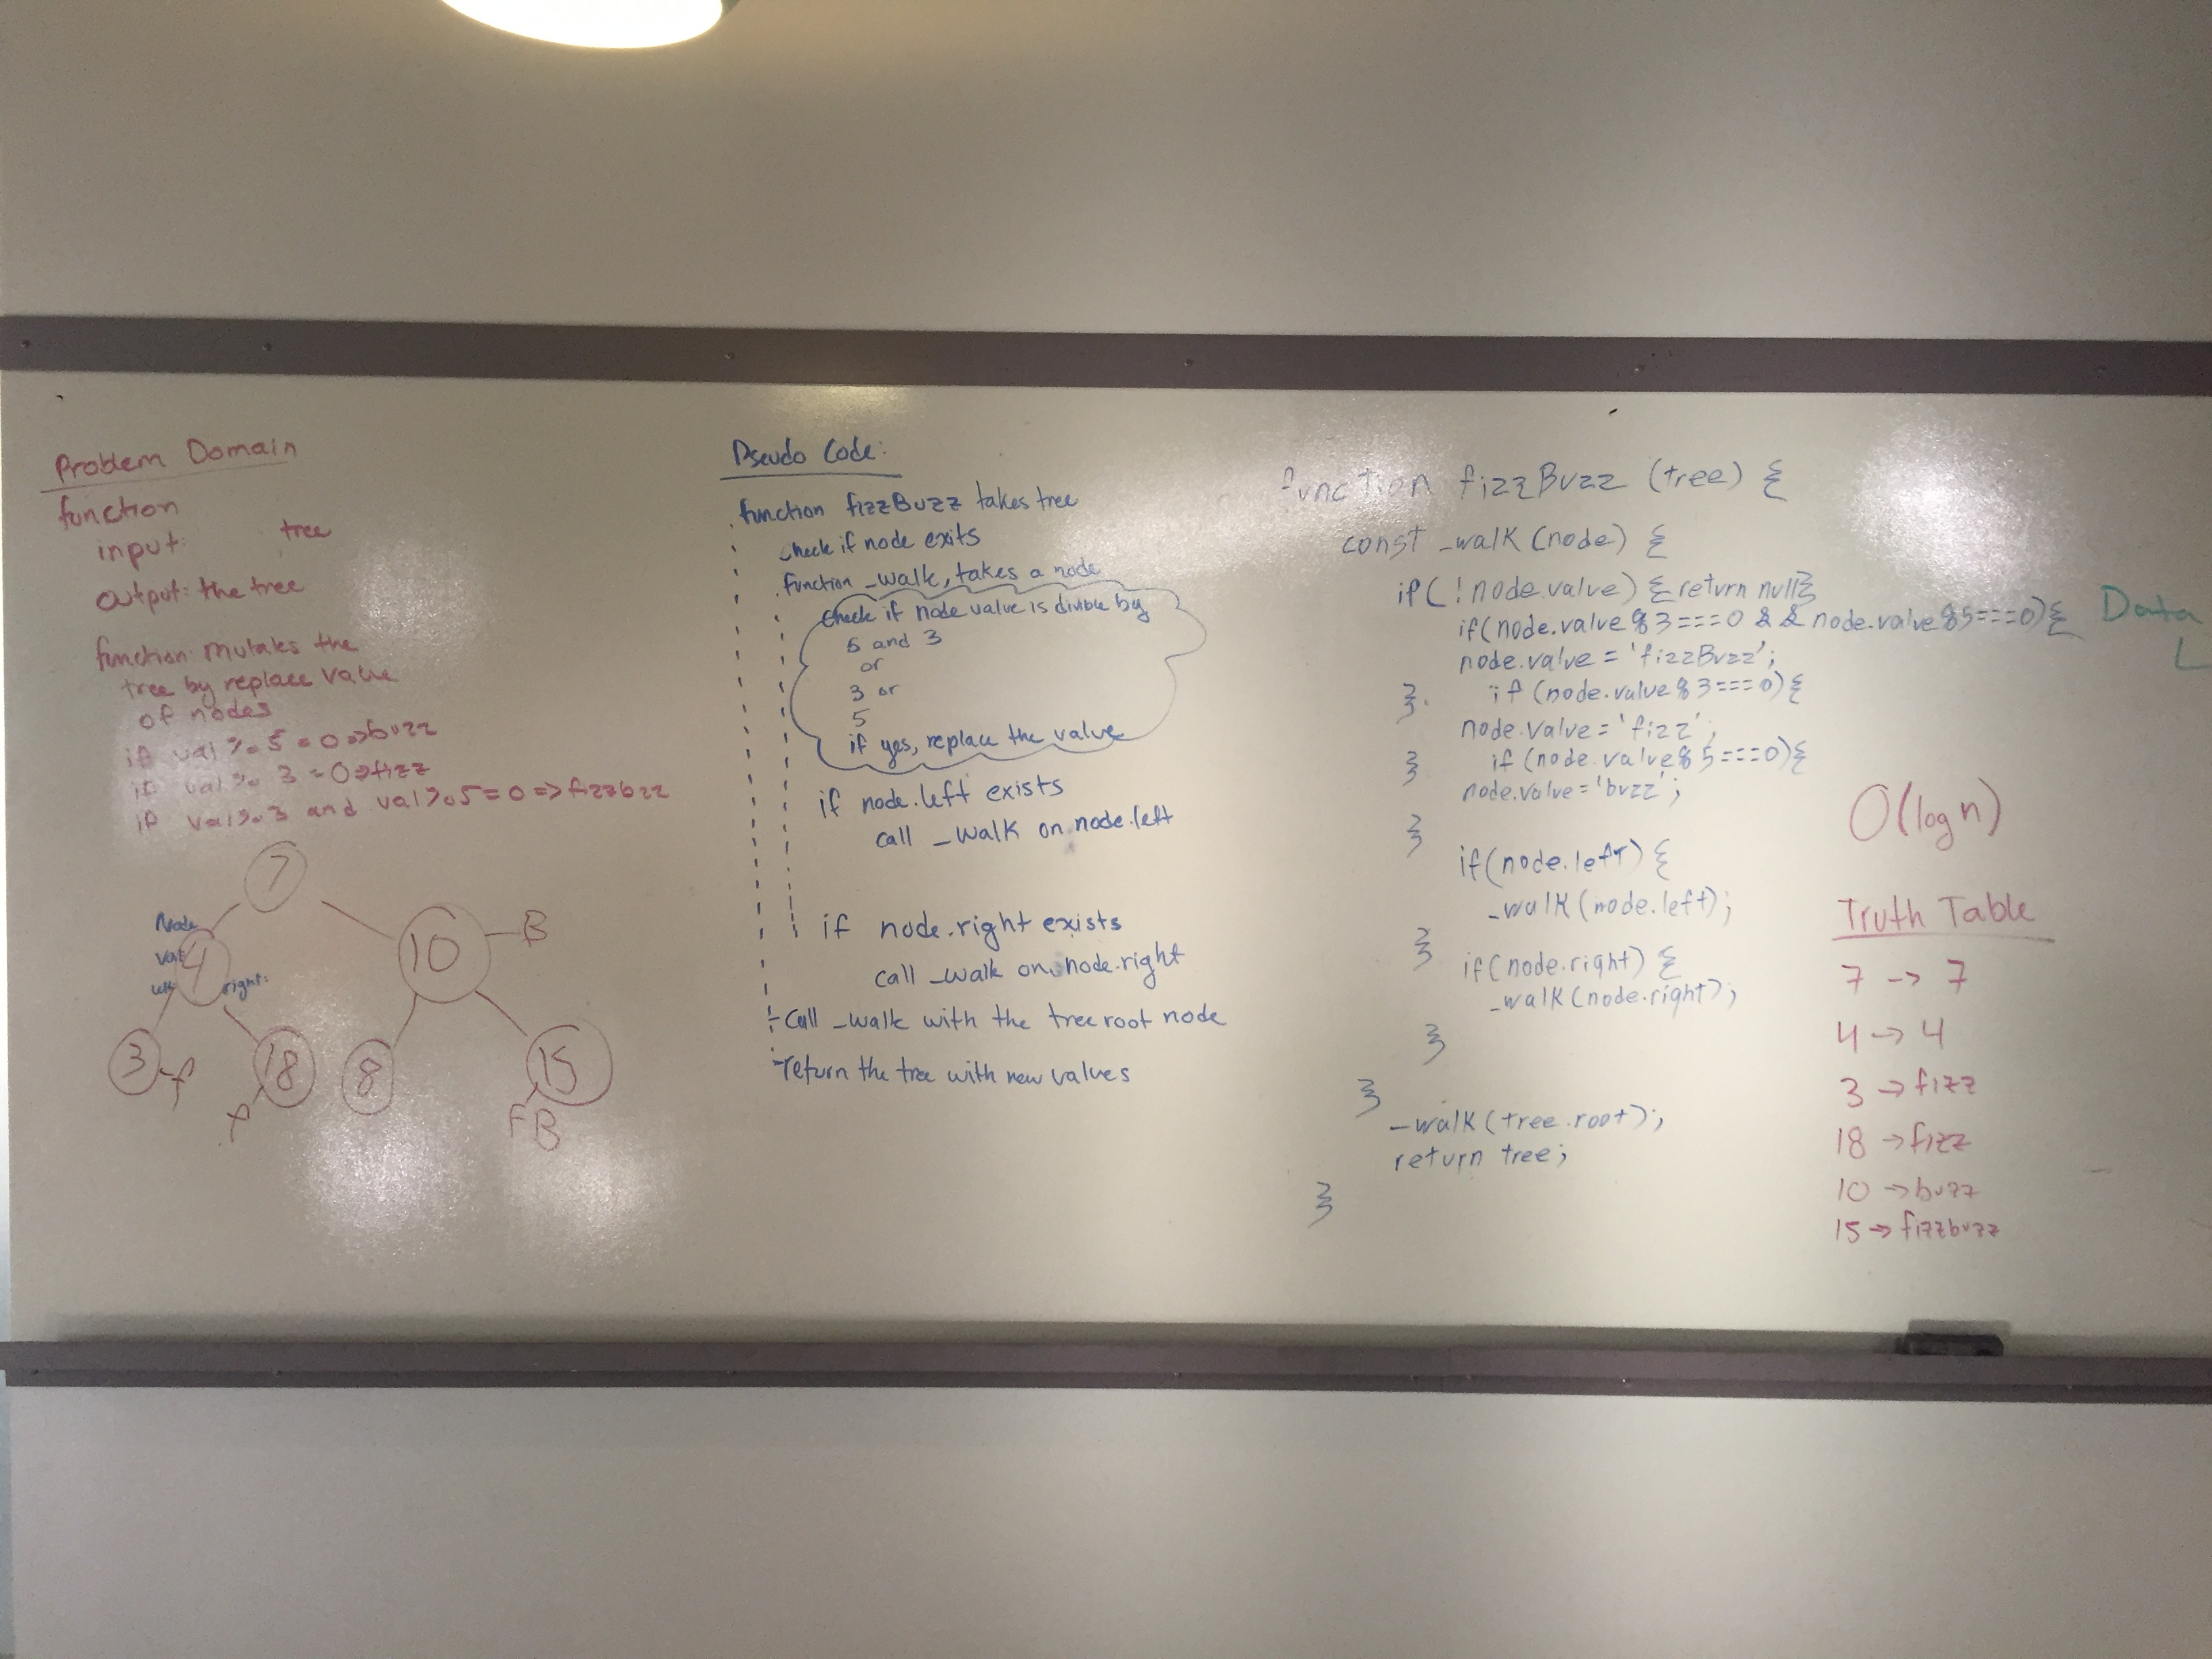 Problem Domain
function
input: tree
output: the tree
function mutates the
tree by replace value
of nodes
if val % 5 = 0 => buzz
if val % 3 = 0 => fizz
if val % 3 and val % 5 = 0 => fizzbuzz
7
Node
val:
left:
right:
4
10 - B
3 - f
18
8
15
FB
Pseudo Code:
function fizzBuzz takes tree
check if node exits
function _walk, takes a node
check if node value is divible by
5 and 3
or
3 or
5
if yes, replace the value
if node.left exists
call _walk on node.left
if node.right exists
call _walk on node.right
- Call _walk with the tree root node
- return the tree with new values
function fizzBuzz (tree) {
const _walk (node) {
if ( ! node.value) { return null }
if (node.value % 3 === 0 && node.value % 5 === 0) {
node.value = 'fizzBuzz';
} if (node.value % 3 === 0) {
node.value = 'fizz';
} if (node.value % 5 === 0) {
node.value = 'buzz';
}
if (node.left) {
_walk (node.left);
} if (node.right) {
_walk (node.right);
}
}
_walk (tree.root);
return tree;
}
Data
L
O(log n)
Truth Table
7 -> 7
4 -> 4
3 -> fizz
18 -> fizz
10 -> buzz
15 -> fizzbuzz